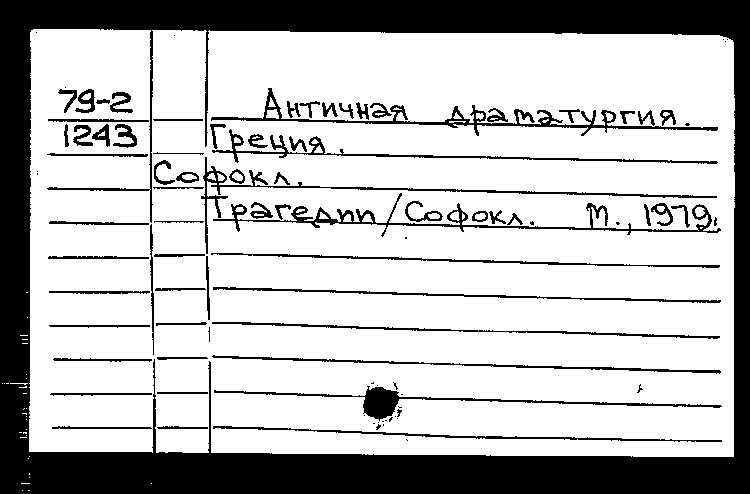 79-2 Античная драматургия.
1243 Греция.
Софокл.
Трагедии/Софокл. М., 1979.